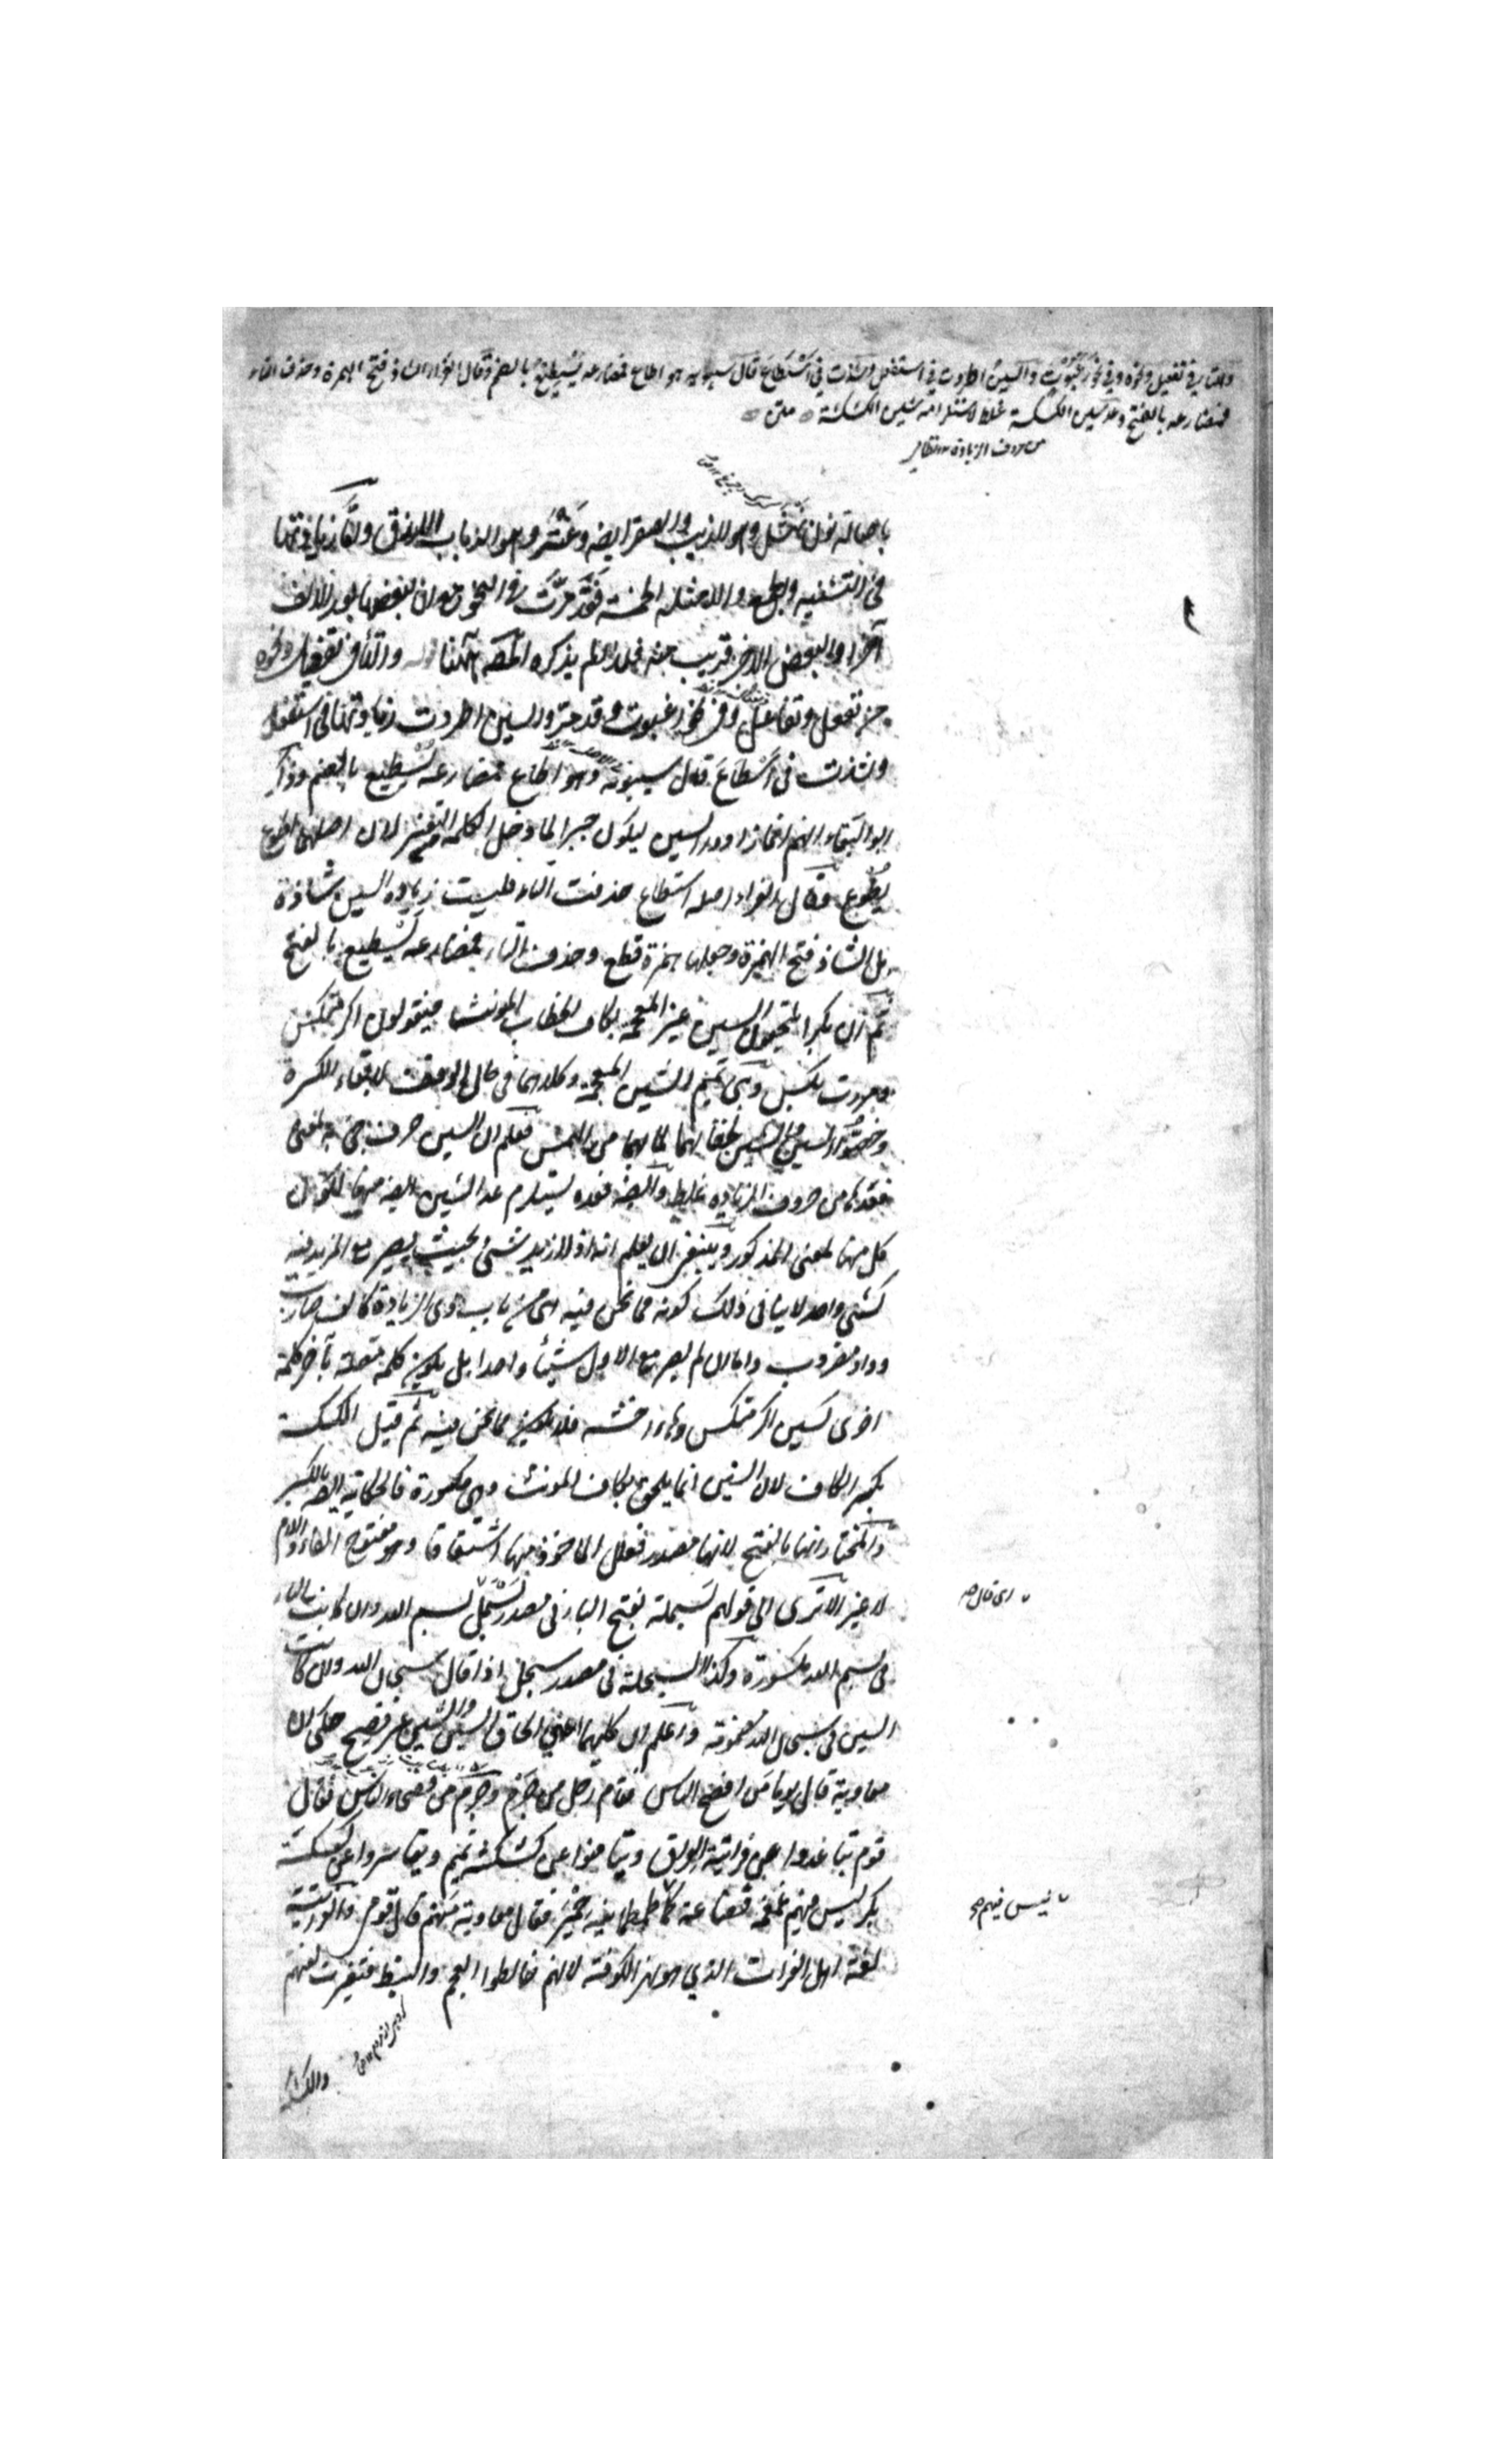 والتاء في تفعيل ونحوه وفي نحو رغبوت والسين اطردت في استفعل وشذت في اسطاع قال سيبويه هو اطاع فمضارعه يسطيع بالضم وقال الفراء الشاذ فتح الهمزة وحذف التاء
فمضارعه بالفتح وعد سين الكسكسة غلط لاستلزامه شين الكشكشة متن
من حروف الزيادة
باصالة نون نهشل وهو للذيب والصقر ايضا وعنتر وهو الذباب الازرق واما زيادتها
في التثنيه والجمع والامثله الخمسة فقد مرت في النحو مع ان بعضها بعد الالف
آخرا والبعض الاخر قريب منه فلذا لم يذكره المصـ ههنا والتاء في تفعيل ونحوه
من تفعل وتفاعل وفي نحو رغبوت وقد مر والسين اطردت زيادتها في استفعل
وشذت في اسطاع قال سيبويه وهو اطاع فمضارعه يسطيع بالضم وذكر
ابو البقاء انهم انما زادوا السين ليكون جبرا لما دخل الكلمه من التغيير لان اصلها اطوع
يطوع وقال الفراء اصله استطاع حذفت التاء فليست زيادة السين شاذة
بل الشاذ فتح الهمزة وجعلها همزة قطع وحذف التاء فمضارعه يسطيع بالفتح
ثم ان بكرا يلحقون السين غير المعجمه بكاف الخطاب المونث فيقولون اكرمتكس
ومررت بكس وبني تميم الشين المعجمة وكلاهما في حال الوقف لابقاء الكسرة
وخصوا السين والشين لخفائهما لما بهما من الهمس فعلم ان السين حرف جئ به لمعنى
فعدها من حروف الزيادة غلط وايضا فعده يستلزم عد الشين ايضا منها لكون
كل منها لمعنى المذكور وينبغي ان يعلم انه اذا زيد شئ بحيث يصير مع المزيد فيه
كشئ واحد لا ينافى ذلك كونه مما نحن فيه اى من باب ذى الزيادة كالف ضارب
وواو مضروب واما ان لم يصر مع الاول شيئا واحدا بل يكون كلمة متصلة بآخر كلمة
اخرى كسين اكرمتكس وهاء اخشه فلا يكون مما نحن فيه ثم قيل الكسكسة
بكسر الكاف لان السين انما يلحق بكاف المونث وهى مكسورة فالحكاية ايضا بالكسر
والمختار انها بالفتح لانها مصدر فعلل الماخوذ منها اشتقاقا وهو مفتوح الفاء واللام
لا غير الا ترى الى قولهم بسملة بفتح الباء في مصدر بسمل بسم الله وان كانت الباء
في بسم الله مكسورة وكذا السبحلة في مصدر سبحل اذا قال سبحان الله وان كانت
السين في سبحان الله مضمومة واعلم ان كليهما اعنى الحاق السين والشين غير فصيح حكى ان
معاوية قال يوما من افصح الناس فقام رجل من جرم وجرم من فصحاء الناس فقال
قوم تباعدوا عن فراتية العراق وتيامنوا عن كشكشة تميم وتياسروا عن كسكسة
بكر ليس فيهم غمغمة قضاعة ولا طمطمانية حمير فقال معاوية منهم قال قومى والفراتية
لغة اهل الفرات الذي هو نهر الكوفة لانهم خالطوا العجم والنبط فتغيرت لغتهم
والكشكشة
اى قال
ليس فيهم